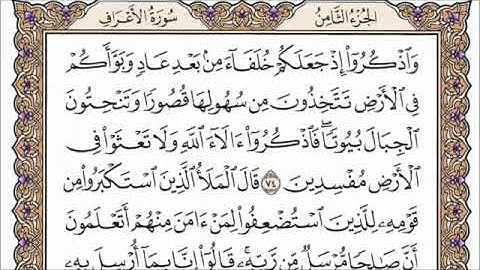 الجزء الثامن سورة الأعراف
وَٱذْكُرُوٓا۟ إِذْ جَعَلَكُمْ خُلَفَآءَ مِنۢ بَعْدِ عَادٍ وَبَوَّأَكُمْ
فِى ٱلْأَرْضِ تَتَّخِذُونَ مِن سُهُولِهَا قُصُورًا وَتَنْحِتُونَ
ٱلْجِبَالَ بُيُوتًا ۖ فَٱذْكُرُوٓا۟ ءَالَآءَ ٱللَّهِ وَلَا تَعْثَوْا۟ فِى
ٱلْأَرْضِ مُفْسِدِينَ ٧٤ قَالَ ٱلْمَلَأُ ٱلَّذِينَ ٱسْتَكْبَرُوا۟ مِن
قَوْمِهِۦ لِلَّذِينَ ٱسْتُضْعِفُوا۟ لِمَنْ ءَامَنَ مِنْهُمْ أَتَعْلَمُونَ
أَنَّ صَٰلِحًا مُّرْسَلٌ مِّن رَّبِّهِۦ ۚ قَالُوٓا۟ إِنَّا بِمَآ أُرْسِلَ بِهِۦ